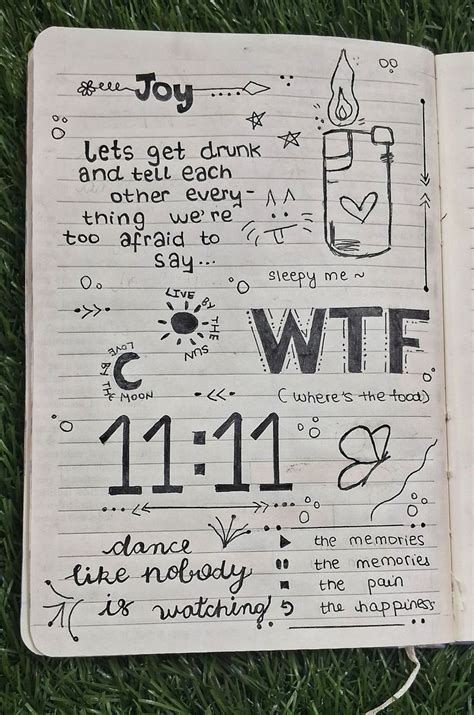 Joy
lets get drunk
and tell each
other every-
thing we're
too afraid to
say...
sleepy me ~
LIVE BY THE SUN
LOVE BY THE MOON
WTF
(where's the food)
11:11
dance
like nobody
is watching!
the memories
the memories
the pain
the happiness